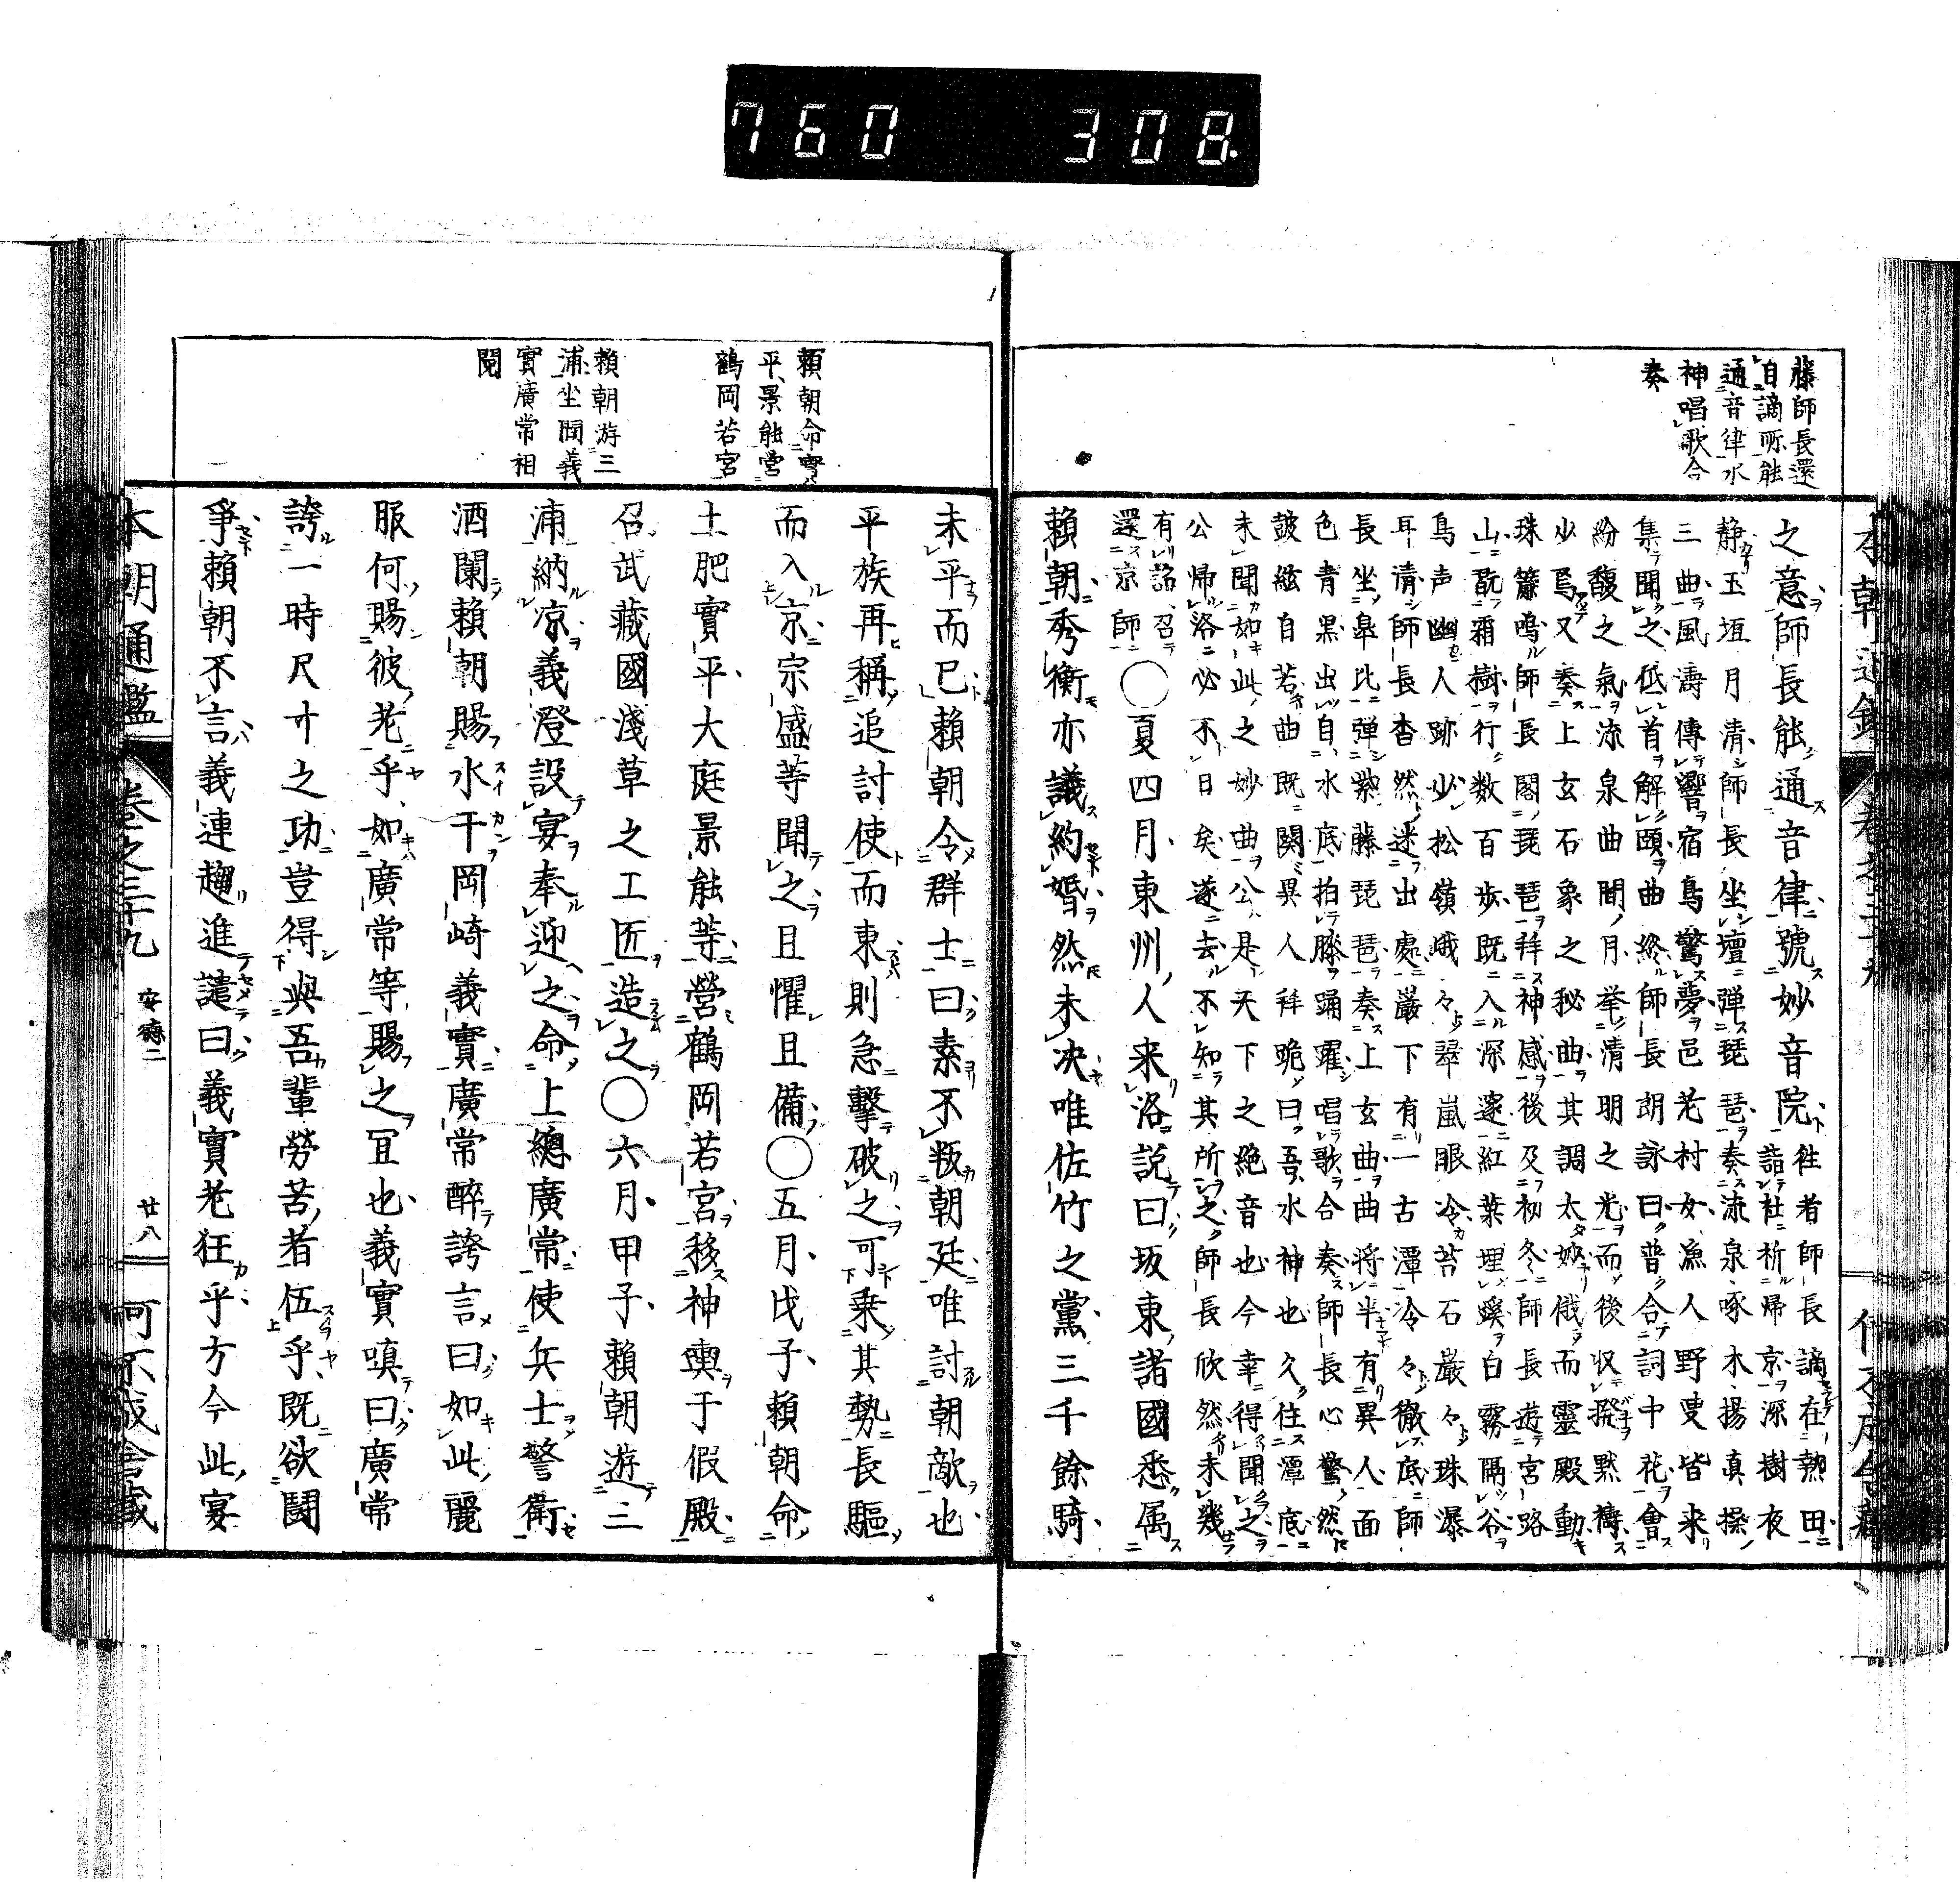 760 308
藤師長還
自謫所能
通音律水
神唱歌合
奏
之意師長能通音律號妙音院往者師長謫在熱田
詣社祈帰京深樹夜
静玉垣月清師長坐壇弾琵琶奏流泉啄木揚真操
三曲風濤傳響宿鳥驚夢邑老村女漁人野叟皆来
集聞之低首解頤曲終師長朗詠曰普合詞中花會
紛馥之氣流泉曲間月挙清明之光而後収撥黙禱
少焉又奏上玄石象之秘曲其調太妙俄而靈殿動
珠簾鳴師長閣琵琶拜神感後及初冬師長遊宮路
山翫霜樹行数百歩既入深邃紅葉埋蹊白霧隔谷
鳥声幽人跡少松嶺峨々翠嵐眼冷苔石巌々珠瀑
耳清師長杳然迷出處巌下有一古潭冷々徹底師
長坐皐比弾紫藤琵琶奏上玄曲曲將半有異人面
色青黒出自水底拍膝踊躍唱歌合奏師長心驚然
皷絃自若曲既闋異人拜跪曰吾水神也久住潭底
未聞如此之妙曲公是天下之絶音也今幸得聞之
公帰洛必不日矣遂去不知其所之師長欣然未幾
有詔召
還京師○夏四月東州人来洛説曰坂東諸國悉属
頼朝秀衡亦議約婚然未决唯佐竹之黨三千餘騎
本朝通鑑 巻之三十九
頼朝命實
平景能營
鶴岡若宮
頼朝游三
浦坐間義
實廣常相
鬩
未平而已頼朝令群士曰素不叛朝廷唯討朝敵也
平族再稱追討使而東則急擊破之可乗其勢長驅
而入京宗盛等聞之且懼且備○五月戊子頼朝命
土肥實平大庭景能等營鶴岡若宮移神輿于假殿
召武藏國淺草之工匠造之○六月甲子頼朝遊三
浦納凉義澄設宴奉迎之命上總廣常使兵士警衛
酒闌頼朝賜水干岡崎義實廣常醉誇言曰如此麗
服何賜彼老乎如廣常等賜之冝也義實嗔曰廣常
誇一時尺寸之功豈得與吾輩勞苦者伍乎既欲鬪
爭頼朝不言義連趨進譴曰義實老狂乎方今此宴
本朝通鑑 巻之三十九 安德二 廿八